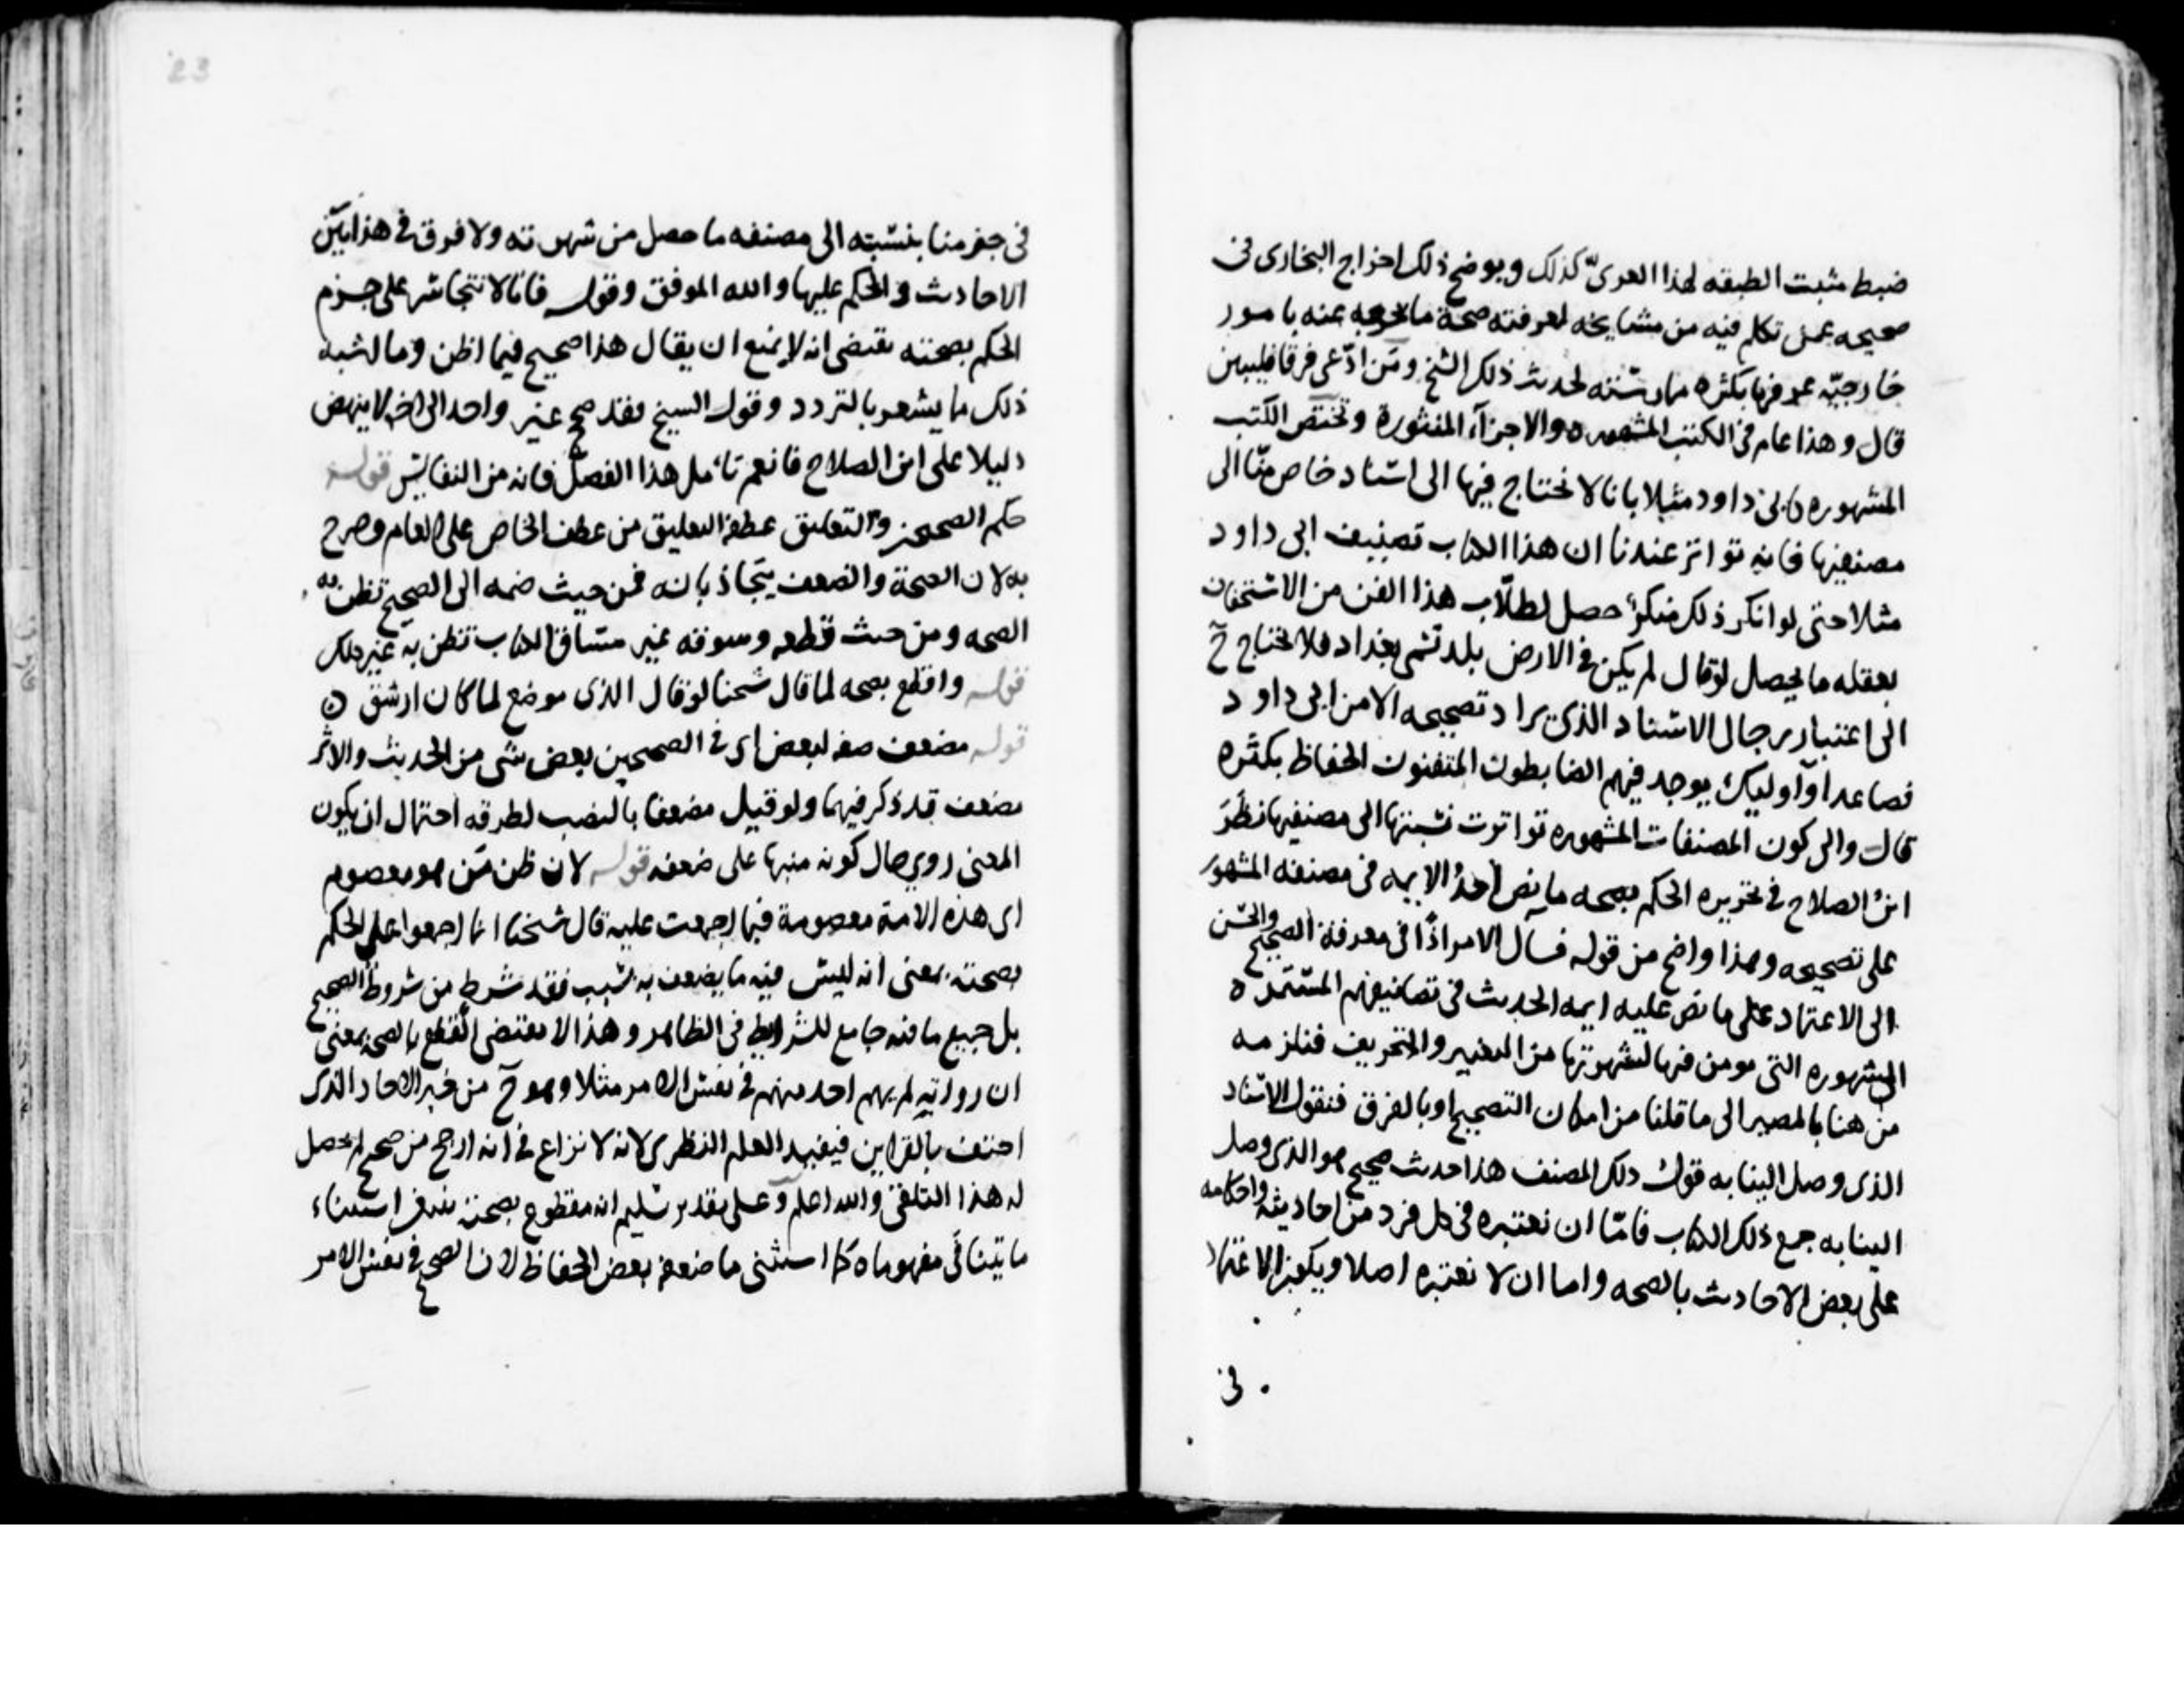 ضبط مثبت الطبقه لهذا العرىّ كذلك ويوضح ذلك اخراج البخارى فى
صحيحه عمن تكلم فيه من مشايخه لمعرفته صحة ما يخرجه عنه بامور
خارجيّه عرفها بكثره ممارسته لحديث ذلك الشخ ومَن ادّعى فرقا فليبين
قال وهذا عام فى الكتب المشهوره والاجزآء المنثورة وتختص الكتب
المشهوره كابى داود مثلا بانا لا نحتاج فيها الى اسناد خاص منّا الى
مصنفيها فانه تواتر عندنا ان هذا الكتاب تصنيف ابى داود
مثلا حتى لو انكر ذلك منكر حصل لطلّاب هذا الفن من الاستخفاف
بعقله ما يحصل لو قال لم يكن فى الارض بلد تسمى بغداد فلا نحتاج ح
الى اعتبار رجال الاسناد الذى يراد تصحيحه الا من ابى داود
فصاعدا واوليك يوجد فيهم الضابطون المتقنون الحفاظ بكثره
قال والى كون المصنفات المشهوره تواترت نسبتها الى مصنفيها نظَرَ
ابنُ الصلاح فى تحريره الحكم بصحه ما نص احدُ الايمه فى مصنفه المشهور
على تصحيحه وهذا واضح من قوله فسآل الامر اذًا فى معرفة الصحيح والحسن
الى الاعتماد على ما نص عليه ايمه الحديث فى تصانيفهم المعتمده
المشهوره التى يومن فيها لشهرتها من التغيير والتحريف فنلزمه
من هنا بالمصير الى ما قلنا من امكان التصحيح او بالفرق فنقول الاسناد
الذى وصل الينا به قول ذلك المصنف هذا حديث صحيح هو الذى وصل
الينا به جميع ذلك الكتاب فامّا ان نعتبره فى كل فرد من احاديثه واحكامه
على بعض الاحاديث بالصحه واما ان لا نعتبره اصلا ويكفى الاعتماد
فى
فى جزمنا بنسبته الى مصنفه ما حصل من شهرته ولا فرق فى هذا بين
الاحاديث والحكم عليها والله الموفق وقوله فانا لا نتجاسر على جزم
الحكم بصحته يقتضى انه لا يمنع ان يقال هذا صحيح فيما اظن وما اشبه
ذلك ما يشعر بالتردد وقول الشيخ فقد صحح غير واحد الى اخره لا ينهض
دليلا على ابن الصلاح فانعم تأمل هذا الفصل فانه من النفايس قوله
حكم الصحيحين والتعليق عطف التعليق من عطف الخاص على العام وصرح
به لان الصحة والضعف يتجاذبانه فمن حيث ضمه الى الصحيح تظن به
الصحه ومن حيث قطعه وسوقه غير مساق الكتاب تظن به غير ذلك
قوله واقطع بصحه لما قال شيخنا لو قال الذى موضع لما كان ارشق
قوله مضعف صفه لبعض اى فى الصحيحين بعض شى من الحديث والاثر
مضعف قد ذكر فيهما ولو قيل مضعفا بالنصب لطرقه احتمال ان يكون
المعنى روى حال كونه منبها على ضعفه قوله لان ظن مَن هو معصوم
اى هذه الامة معصومة فيما اجمعت عليه قال شيخنا انما اجمعوا على الحكم
بصحته بمعنى انه ليس فيه ما يضعف به بسبب فقد شرط من شروط الصحيح
بل جميع ما فيه جامع للشرايط فى الظاهر وهذا لا يقتضى القطع بالصحه بمعنى
ان رواته لم يهم احد منهم فى نفس الامر مثلا وهو ح من خبر الاحاد الذى
احتف بالقراين فيفيد العلم النظرى لانه لا نزاع فى انه ارجح من صحيح لم يحصل
له هذا التلقى والله اعلم وعلى تقدير تسليم انه مقطوع بصحته استثناء
ما يتنافى مفهوماه كما استثنى ما ضعفه بعض الحفاظ لان الصحيح فى نفس الامر